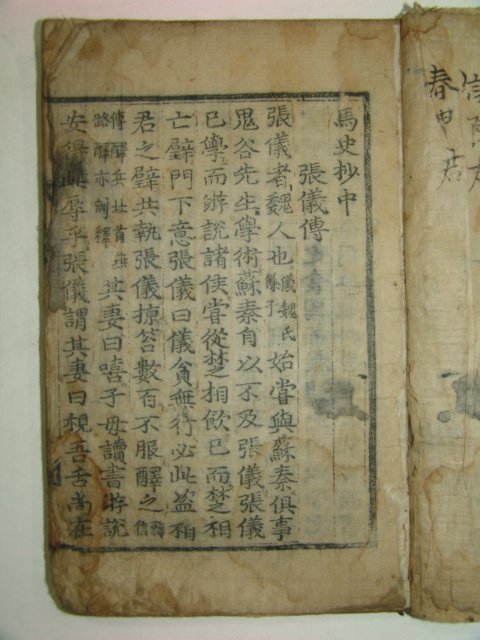 春申君
馬史抄中
張儀傳
張儀者魏人也儀魏氏餘子始嘗與蘇秦俱事
鬼谷先生學術蘇秦自以不及張儀張儀
已學而游說諸侯嘗從楚相飮已而楚相
亡璧門下意張儀曰儀貧無行必此盗相
君之璧共執張儀掠笞數百不服醳之
其妻曰嘻子毋讀書游說
安得此辱乎張儀謂其妻曰視吾舌尚在